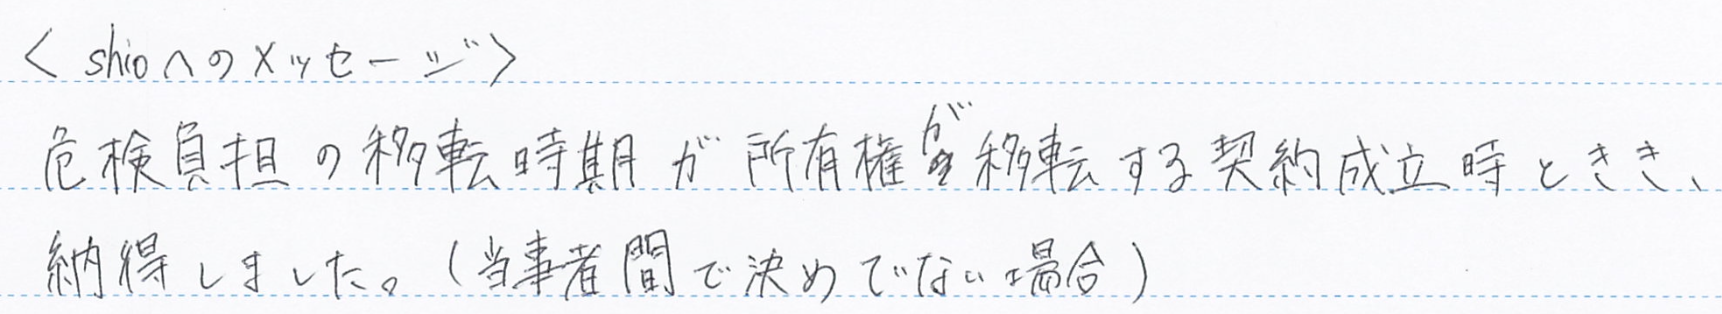 〈shioへのメッセージ〉
危検負担の移転時期が所有権が移転する契約成立時ときき、
納得しました。(当事者間で決めでない場合)